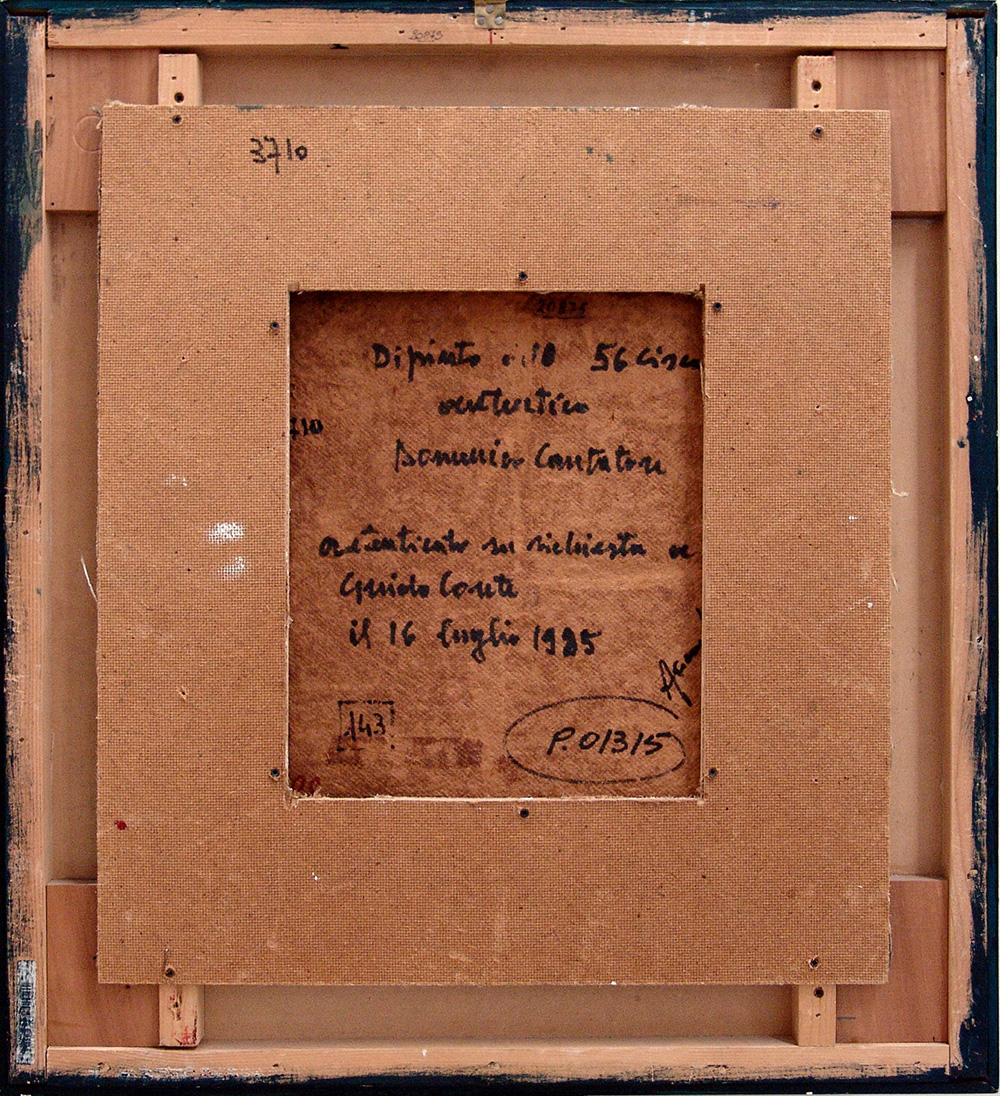 20875
3710
20875
Dipinto 56 circa
autentico
710
Domenico Cantatore
autenticato su richiesta
Guido Conte
il 16 luglio 1985
143
P.01315